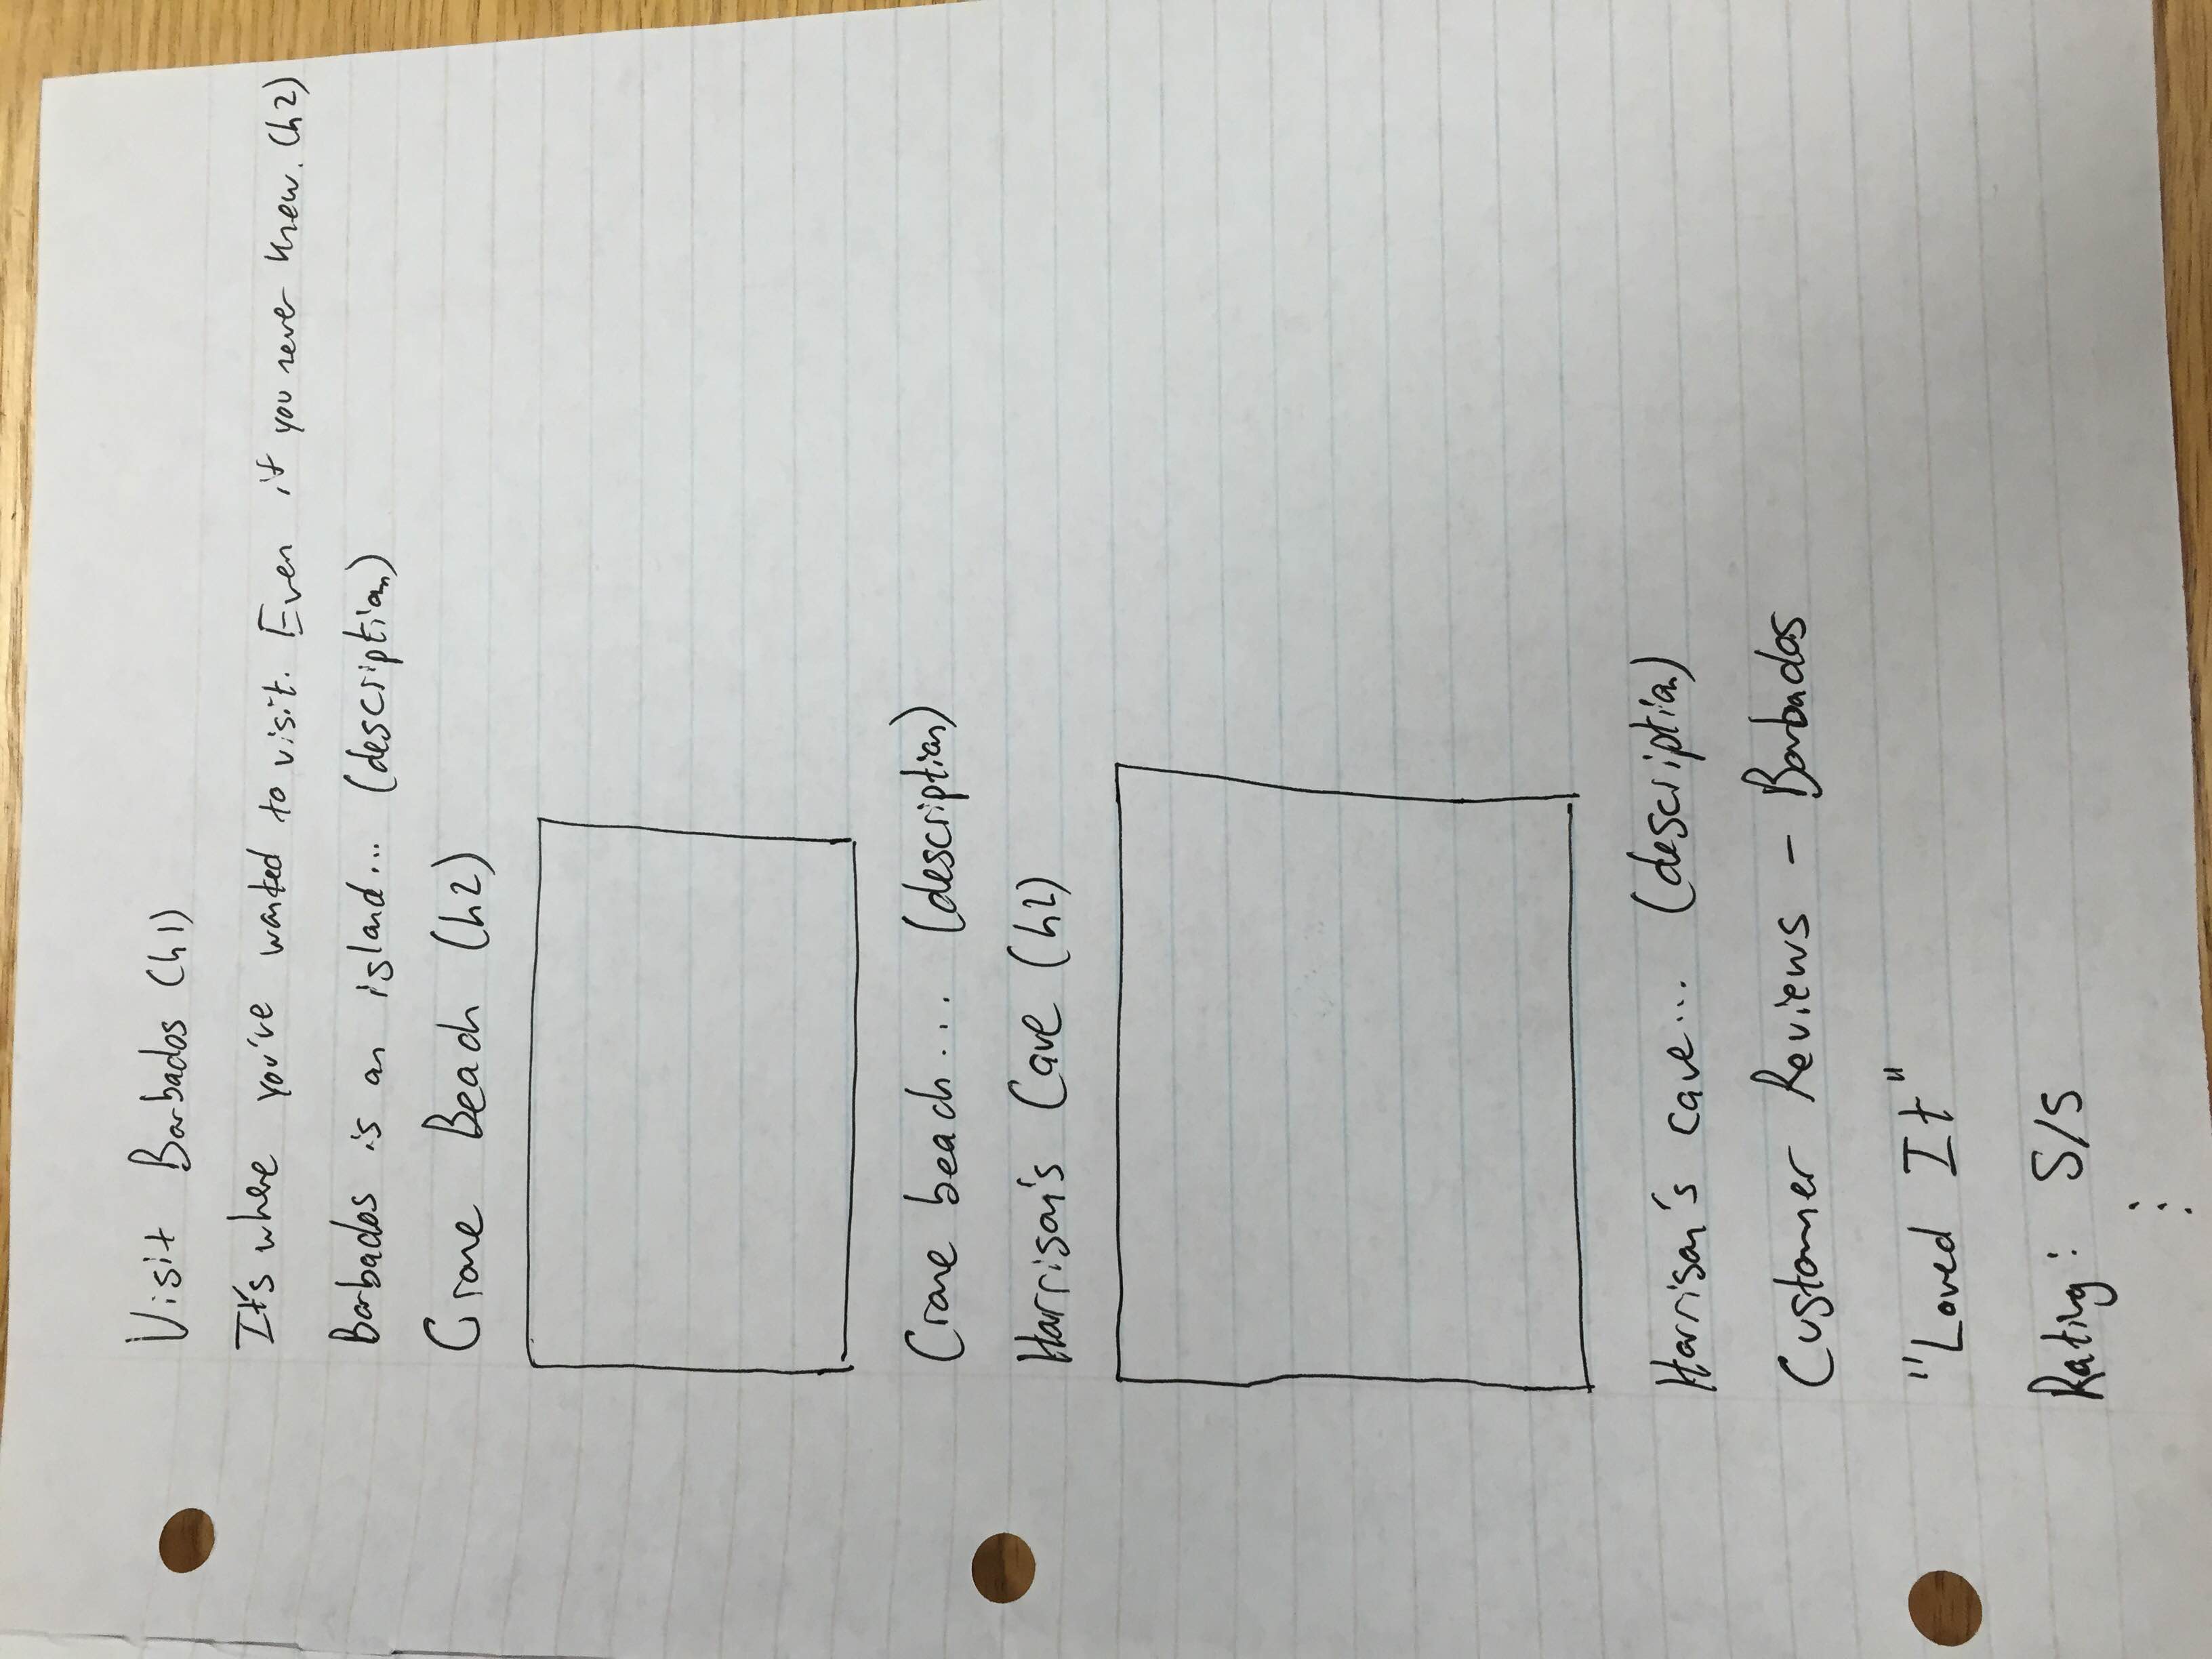 Visit Barbados (h1)
It's where you've wanted to visit. Even if you never knew. (h2)
Barbados is an island... (description)
Crane Beach (h2)
Crane beach... (description)
Harrison's Cave (h2)
Harrison's cave... (description)
Customer Reviews - Barbados
"Loved It"
Rating: 5/5
⋮